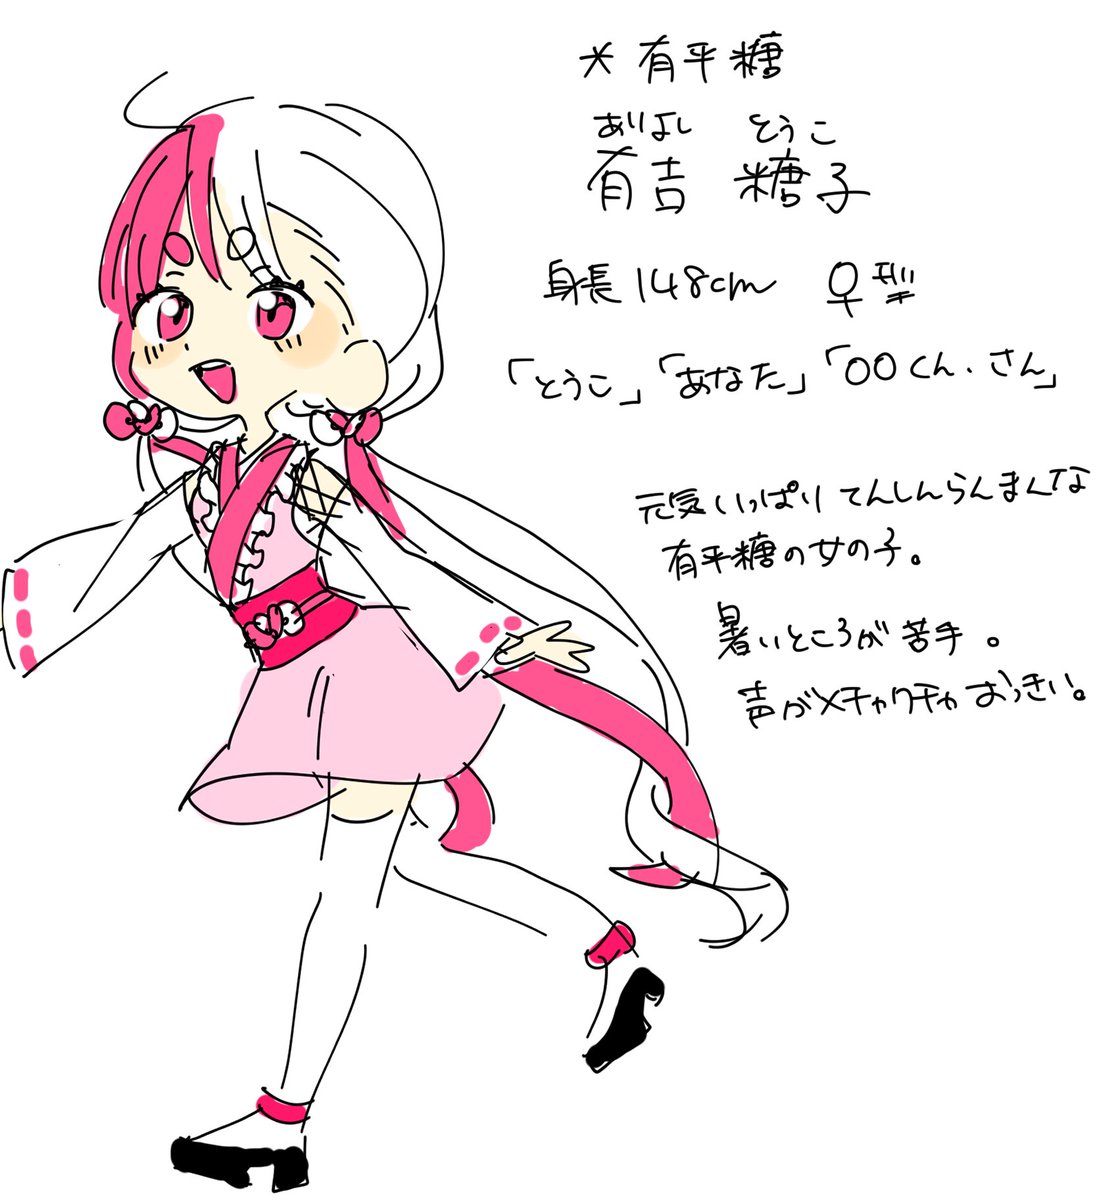 *有平糖
ありよし とうこ
有吉 糖子
身長148cm ♀型
「とうこ」「あなた」「〇〇くん、さん」
元気いっぱりてんしんらんまんな
有平糖の女の子。
暑いところが苦手。
声がメチャクチャおっきい。